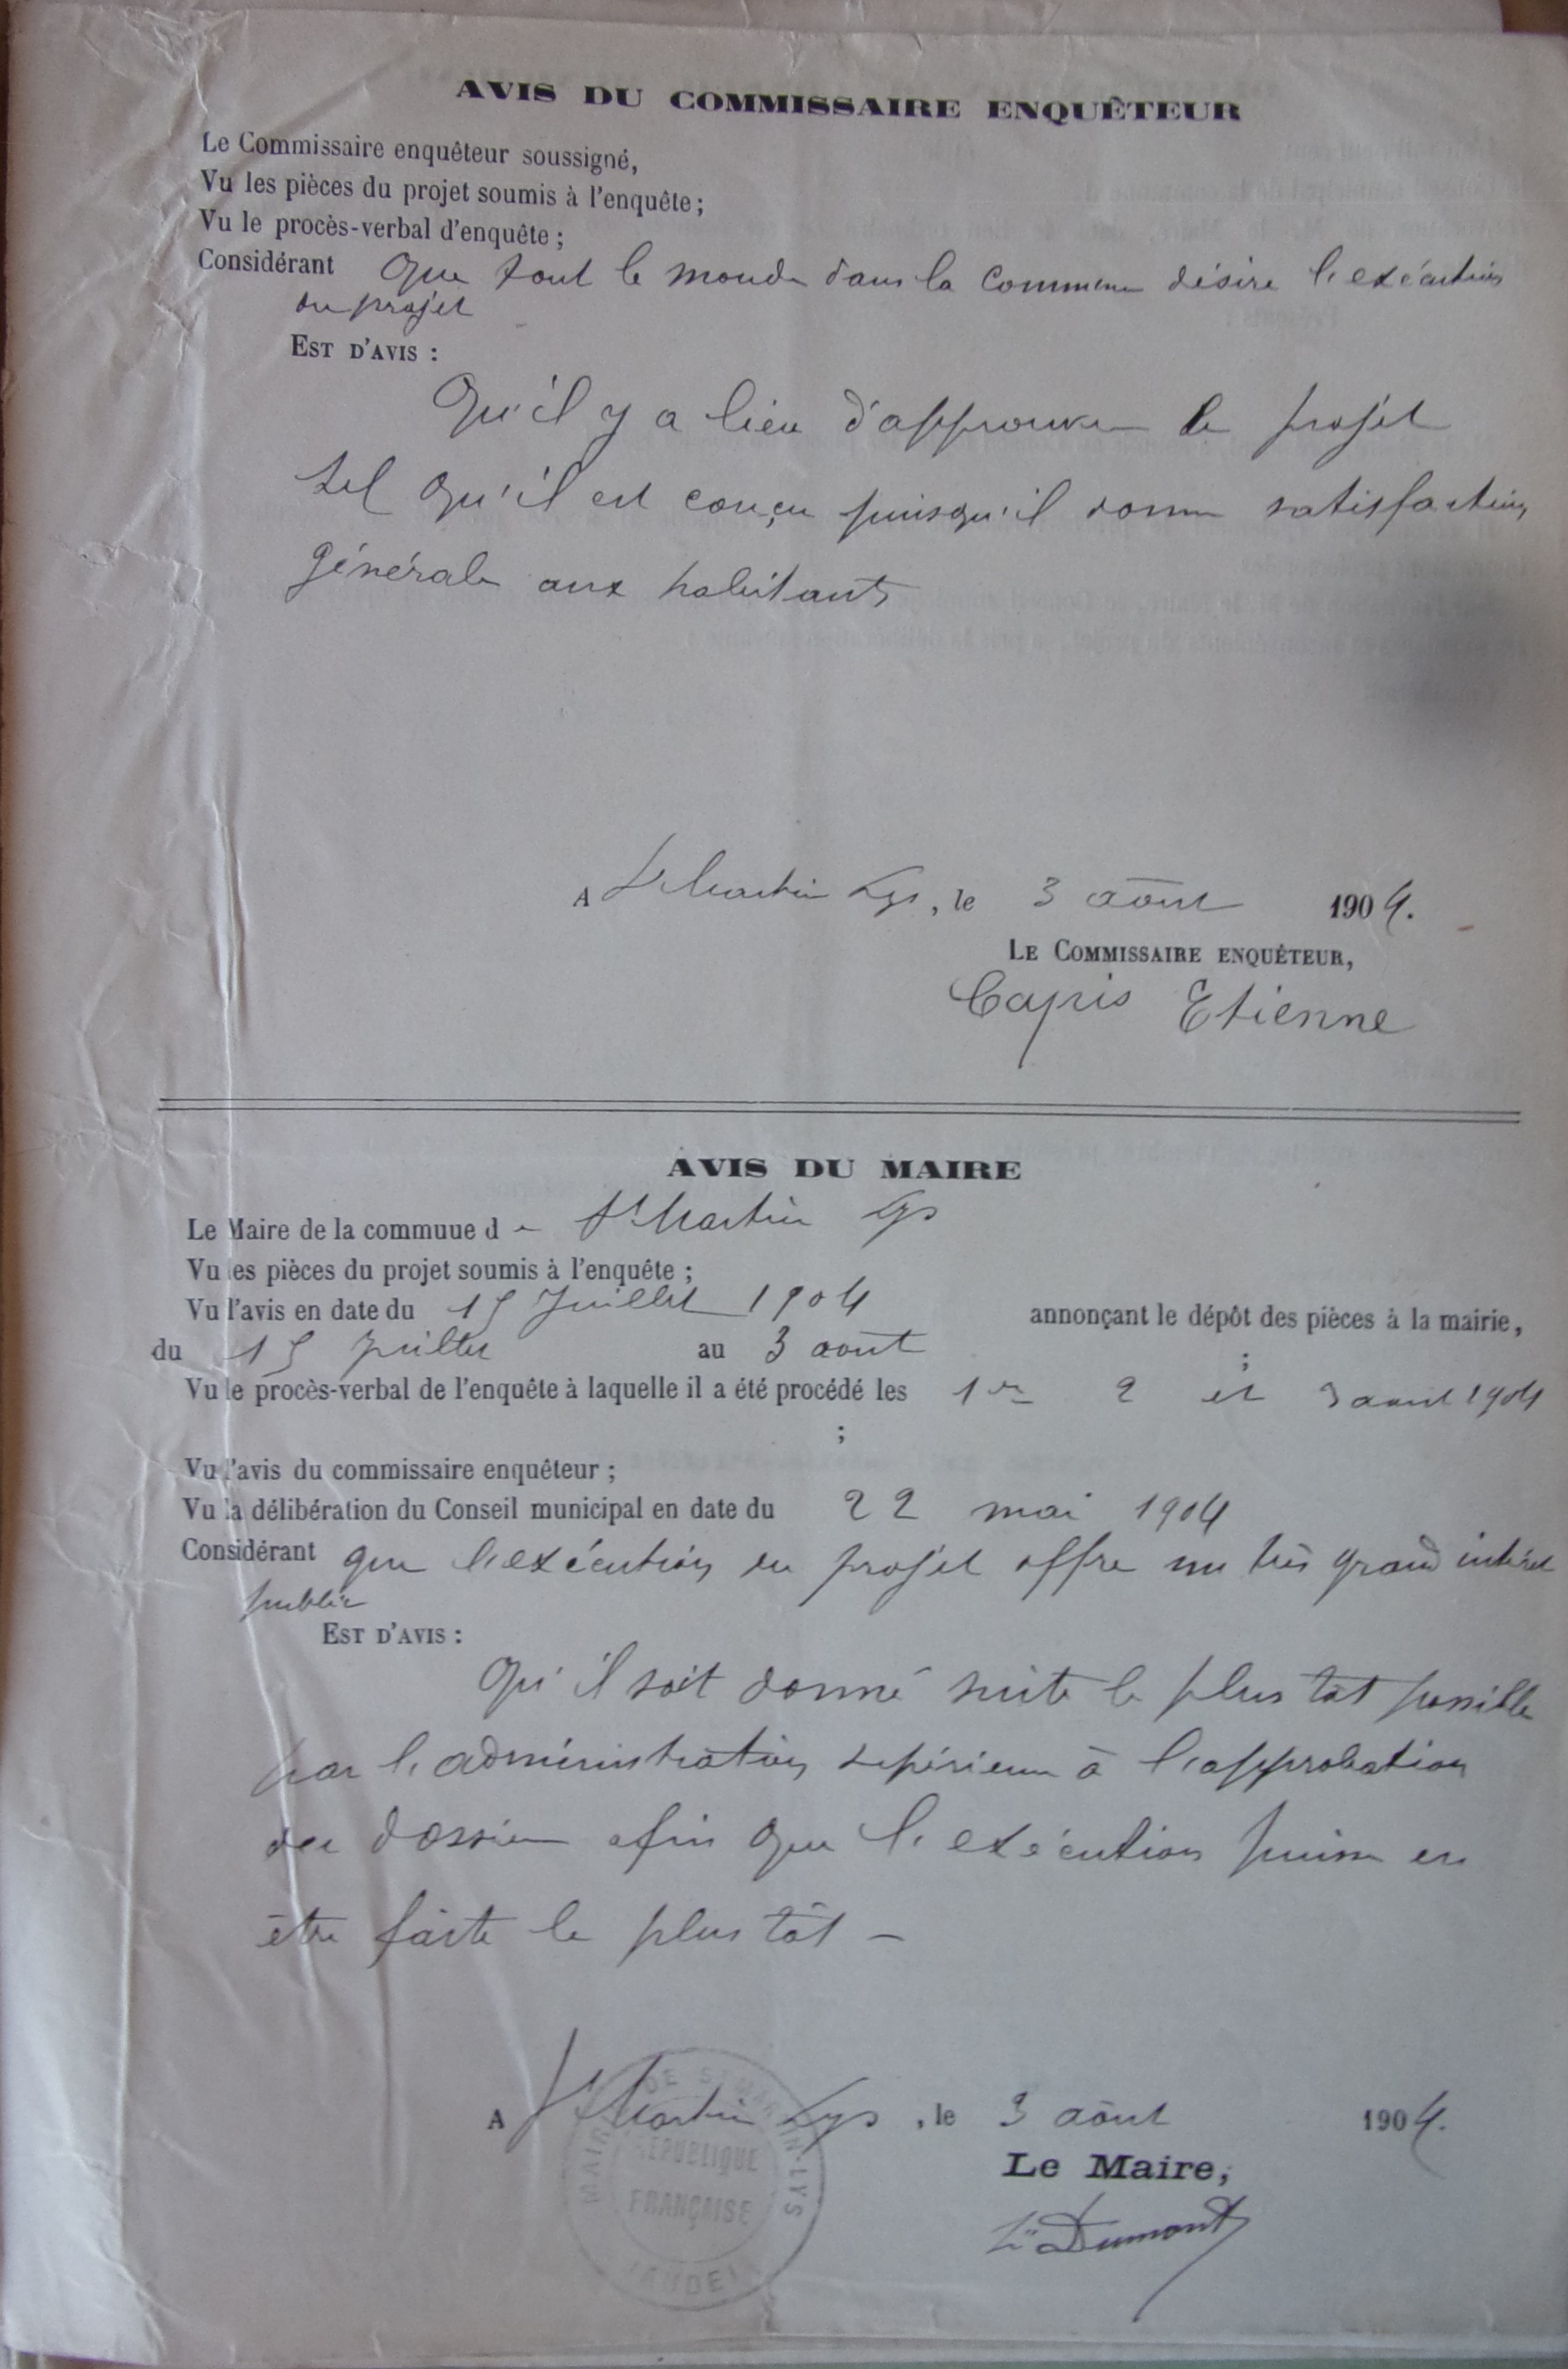 AVIS DU COMMISSAIRE ENQUÊTEUR
Le Commissaire enquêteur soussigné,
Vu les pièces du projet soumis à l'enquête ;
Vu le procès-verbal d'enquête ;
Considérant que tout le monde dans la commune désire l'exécution
du projet
EST D'AVIS :
Qu'il y a lieu d'approuver le projet
tel qu'il est conçu puisqu'il donne satisfaction
générale aux habitants
A St Martin Lys, le 3 août 1904.
LE COMMISSAIRE ENQUÊTEUR,
Capris Etienne
AVIS DU MAIRE
Le Maire de la commuue de St Martin Lys
Vu les pièces du projet soumis à l'enquête ;
Vu l'avis en date du 15 Juillet 1904 annonçant le dépôt des pièces à la mairie,
du 15 juillet au 3 août ;
Vu le procès-verbal de l'enquête à laquelle il a été procédé les 1er 2 et 3 août 1904
;
Vu l'avis du commissaire enquêteur ;
Vu la délibération du Conseil municipal en date du 22 mai 1904
Considérant que l'exécution du projet offre un très grand intérêt
public
EST D'AVIS :
Qu'il soit donné suite le plus tôt possible
par l'administration supérieure à l'approbation
du dossier afin que l'exécution puisse en
être faite le plus tôt —
A St Martin Lys, le 3 août 1904.
MAIRIE DE ST MARTIN-LYS
RÉPUBLIQUE
FRANÇAISE
(AUDE)
Le Maire,
Dumont